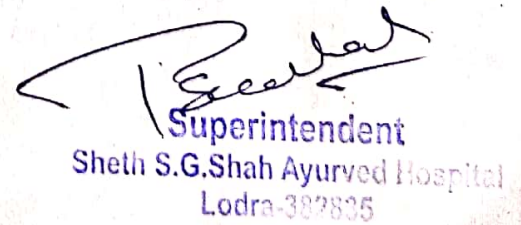 Superintendent
Sheth S.G.Shah Ayurved Hospital
Lodra-382835